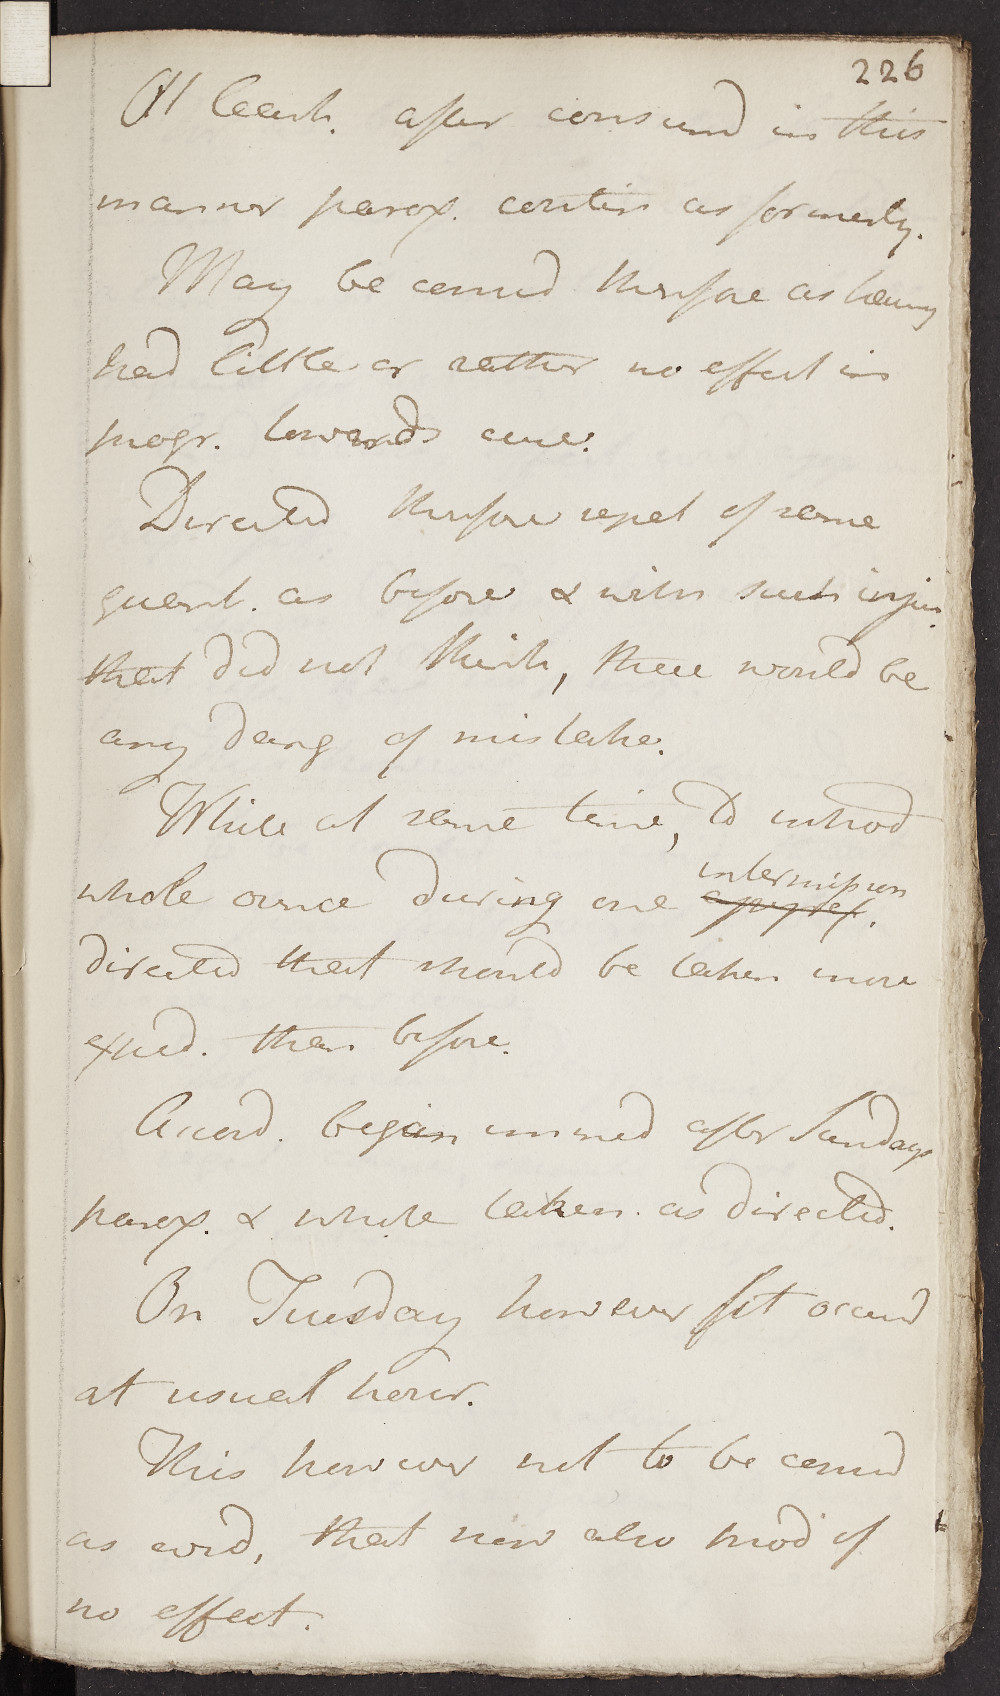 226
Of least. after consumd in this
manner parox. contin as formerly.
May be consid therefore as having
had little or rather no effect in
progr. towards cure.
Directed therefore repet of same
quant. as before & with such injun.
that did not think, there would be
any dang of mistake.
While at same time, to introd
whole ounce during one intermission
apyrex.
directed that should be taken more
exped. than before.
Accord. began immed after Sundays
parox. & whole taken. as directed.
On Tuesday however fit occurd
at usual hour.
This however not to be consid
as evid, that now also prod of
no effect.